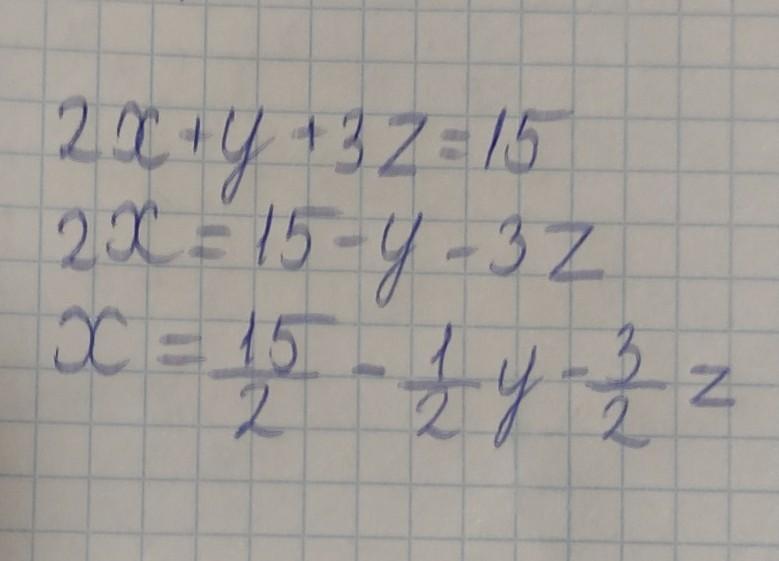 2x+y+3z=15
2x=15-y-3z
x=15/2-1/2y-3/2z